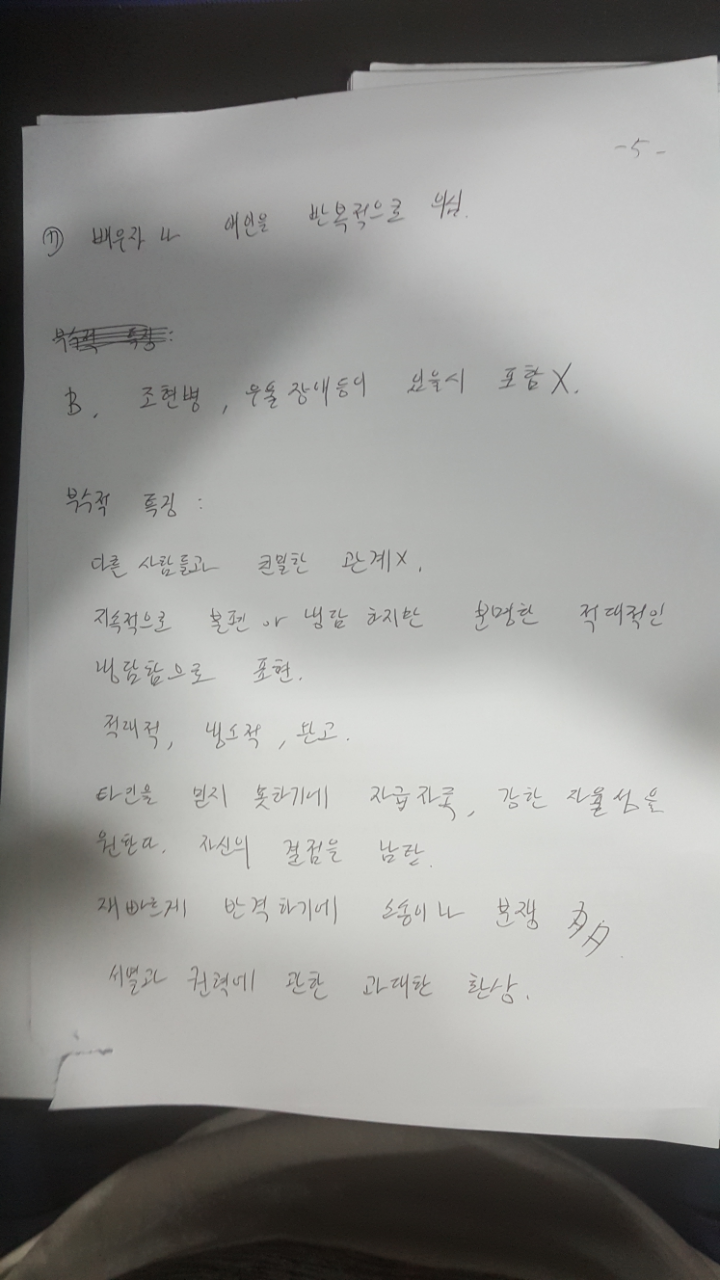 -5-
⑦ 배우자 나 애인을 반복적으로 의심.
부수적 특징:
B. 조현병, 우울장애등이 있을시 포함X.
부수적 특징:
다른 사람들과 친밀한 관계X.
지속적으로 불편 or 냉담 하지만 분명한 적대적인
냉담함으로 표현.
적대적, 냉소적, 완고.
타인을 믿지 못하기에 자급자족, 강한 자율성을
원한다. 자신의 결점을 남탓.
재빠르게 반격하기에 소송이나 분쟁 多.
서열과 권력에 관한 과대한 환상.